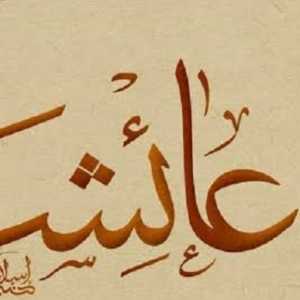 عائش